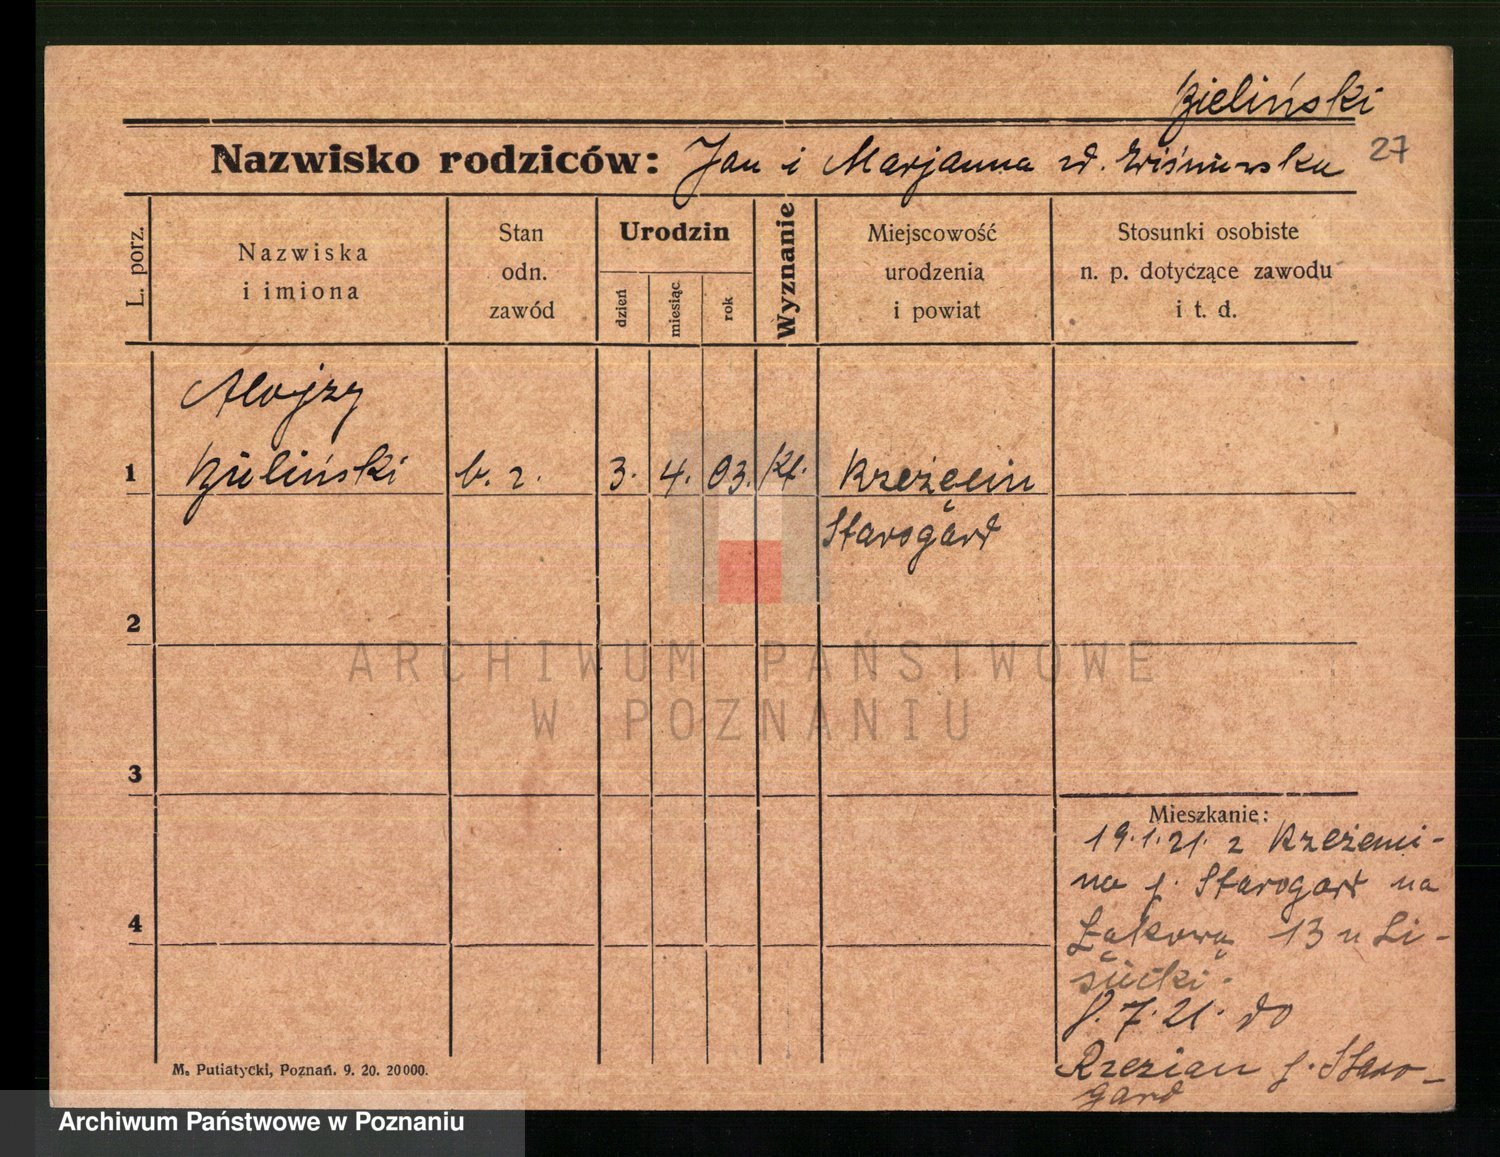 Zieliński
Nazwisko rodziców: Jan i Marjanna zd. Wiśniewska 27
L. porz.
Nazwiska
i imiona
Stan
odn.
zawód
Urodzin
dzień
miesiąc
rok
Wyznanie
Miejscowość
urodzenia
i powiat
Stosunki osobiste
n. p. dotyczące zawodu
i t. d.
Alojzy
1 Zieliński b. z. 3. 4. 03. kt.
Starogard
2
3
4
Mieszkanie:
19.1.21. z
na p. Starogard na
Łąkową 13 u Li-
8.7.21. do
p. Staro-
gard
M. Putiatycki, Poznań. 9. 20. 20000.
ARCHIWUM PAŃSTWOWE
W POZNANIU
Archiwum Państwowe w Poznaniu